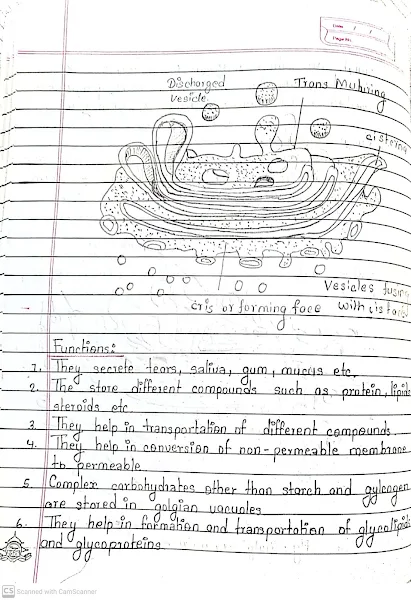 Date / /
Page No.
Discharged
Vesicle
Trans Maturing
cisterna
Vesicles fusing
cris or forming face with cisterna
Functions:
1. They secrete tears, saliva, gum, mucus etc.
2. The store different compounds such as protein, lipids
steroids etc
3. They help in transportation of different compounds.
4. They help in conversion of non-permeable membrane
to permeable
5. Complex carbohydrates other than starch and gylcogen
are stored in golgian vacuoles
6. They help in formation and transportation of glycolipids
and glycoproteins
CS Scanned with CamScanner